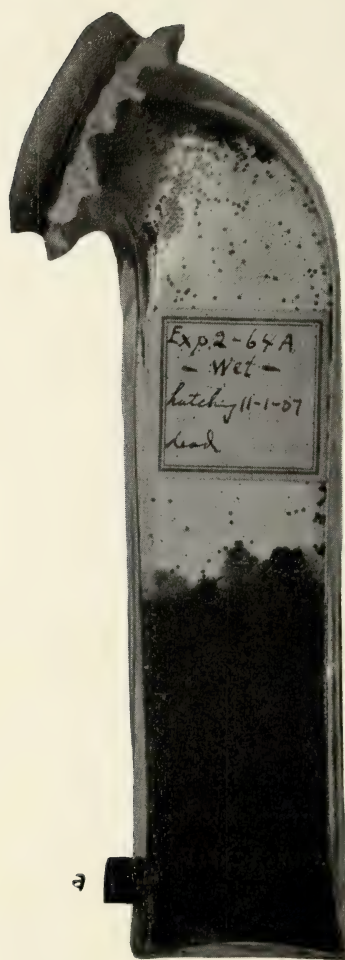 Exp. 2-64 A
- Wet -
hatching 11-1-07
dead
a